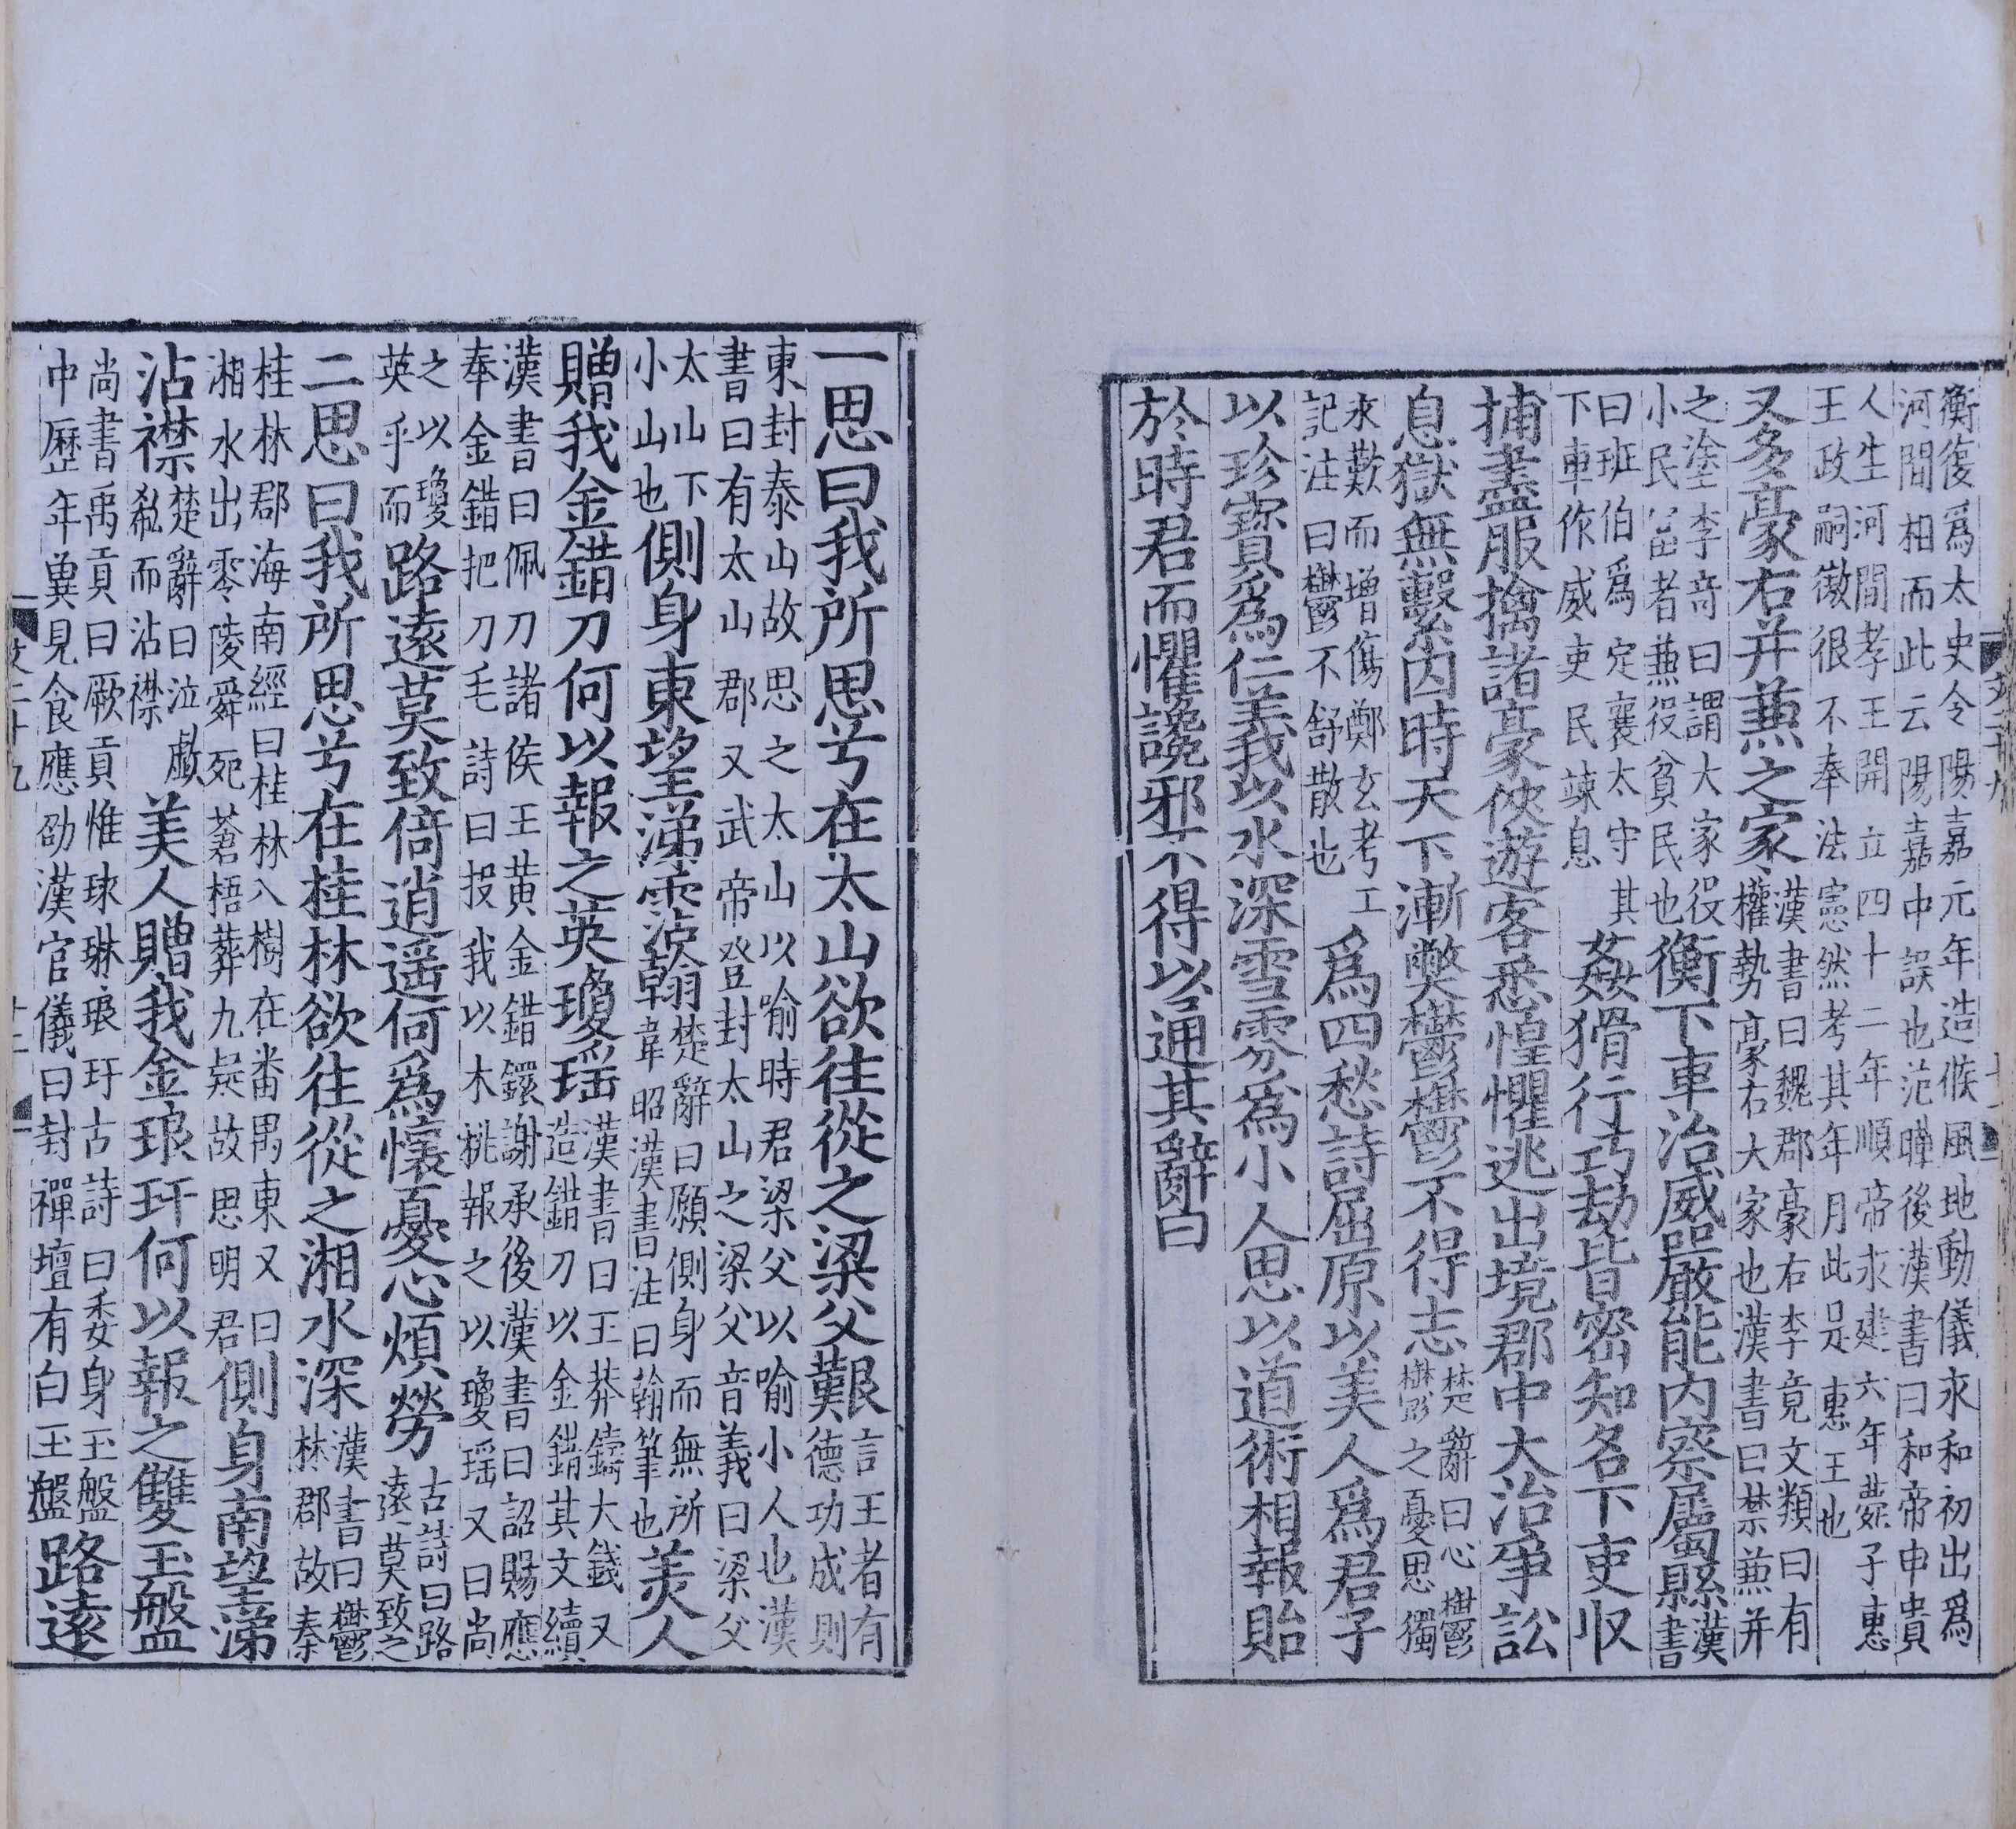 衡復爲太史令陽嘉元年造候風地動儀永和初出爲
河間相而此云陽嘉中誤也范曄後漢書曰和帝申貴
人生河間孝王開立四十二年順帝永建六年薨子惠
王政嗣傲很不奉法憲然考其年月此是惠王也
又多豪右并兼之家
漢書曰魏郡豪右李竟文類曰有
權勢豪右大家也漢書曰禁兼并
之塗李竒曰謂大家役
小民富者兼役貧民也
衡下車治威嚴能内察屬縣
漢
書
曰班伯爲定襄太守其
下車作威吏民竦息
姦猾行巧劫皆密知名下吏收
捕盡服擒諸豪俠遊客悉惶懼逃出境郡中大治爭訟
息獄無繫囚時天下漸弊鬱鬱不得志
楚辭曰心鬱
鬱之憂思獨
永歎而增傷鄭玄考工
記注曰鬱不舒散也
爲四愁詩屈原以美人爲君子
以珍寶爲仁義我以水深雪雰爲小人思以道術相報貽
於時君而懼讒邪不得以通其辭曰
一思曰我所思兮在太山欲往從之梁父艱
言王者有
德功成則
東封泰山故思之太山以喻時君梁父以喻小人也漢
書曰有太山郡又武帝登封太山之梁父音義曰梁父
太山下
小山也
側身東望涕霑翰
楚辭曰願側身而無所
韋昭漢書曰注曰翰筆也
美人
贈我金錯刀何以報之英瓊瑶
漢書曰王莽鑄大錢又
造錯刀以金錯其文續
漢書曰佩刀諸侯王黄金錯鐶謝承後漢書曰詔賜應
奉金錯把刀毛詩曰投我以木桃報之以瓊瑶又曰尚
之以瓊
英乎而
路遠莫致倚逍遥何爲懷憂心煩勞
古詩曰路
遠莫致之
二思曰我所思兮在桂林欲往從之湘水深
漢書曰鬱
林郡故秦
桂林郡海南經曰桂林八樹在番禺東又曰
湘水出零陵舜死蒼梧葬九疑故思明君
側身南望涕
沾襟
楚辭曰泣歔
欷而沾襟
美人贈我金琅玕何以報之雙玉盤
尚書禹貢曰厥貢惟球琳琅玕古詩曰委身玉盤
中歷年兾見食應劭漢官儀曰封禪壇有白玉盤
路遠